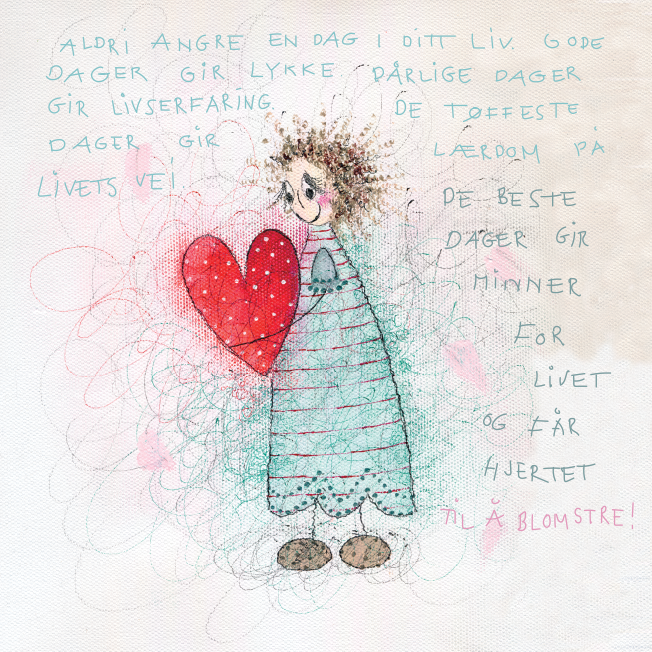 ALDRI ANGRE EN DAG I DITT LIV. GODE
DAGER GIR LYKKE DÅRLIGE DAGER
GIR LIVSERFARING. DE TØFFESTE
DAGER GIR LÆRDOM PÅ
LIVETS VEI
DE BESTE
DAGER GIR
MINNER
FOR
LIVET
OG FÅR
HJERTET
TIL Å BLOMSTRE!